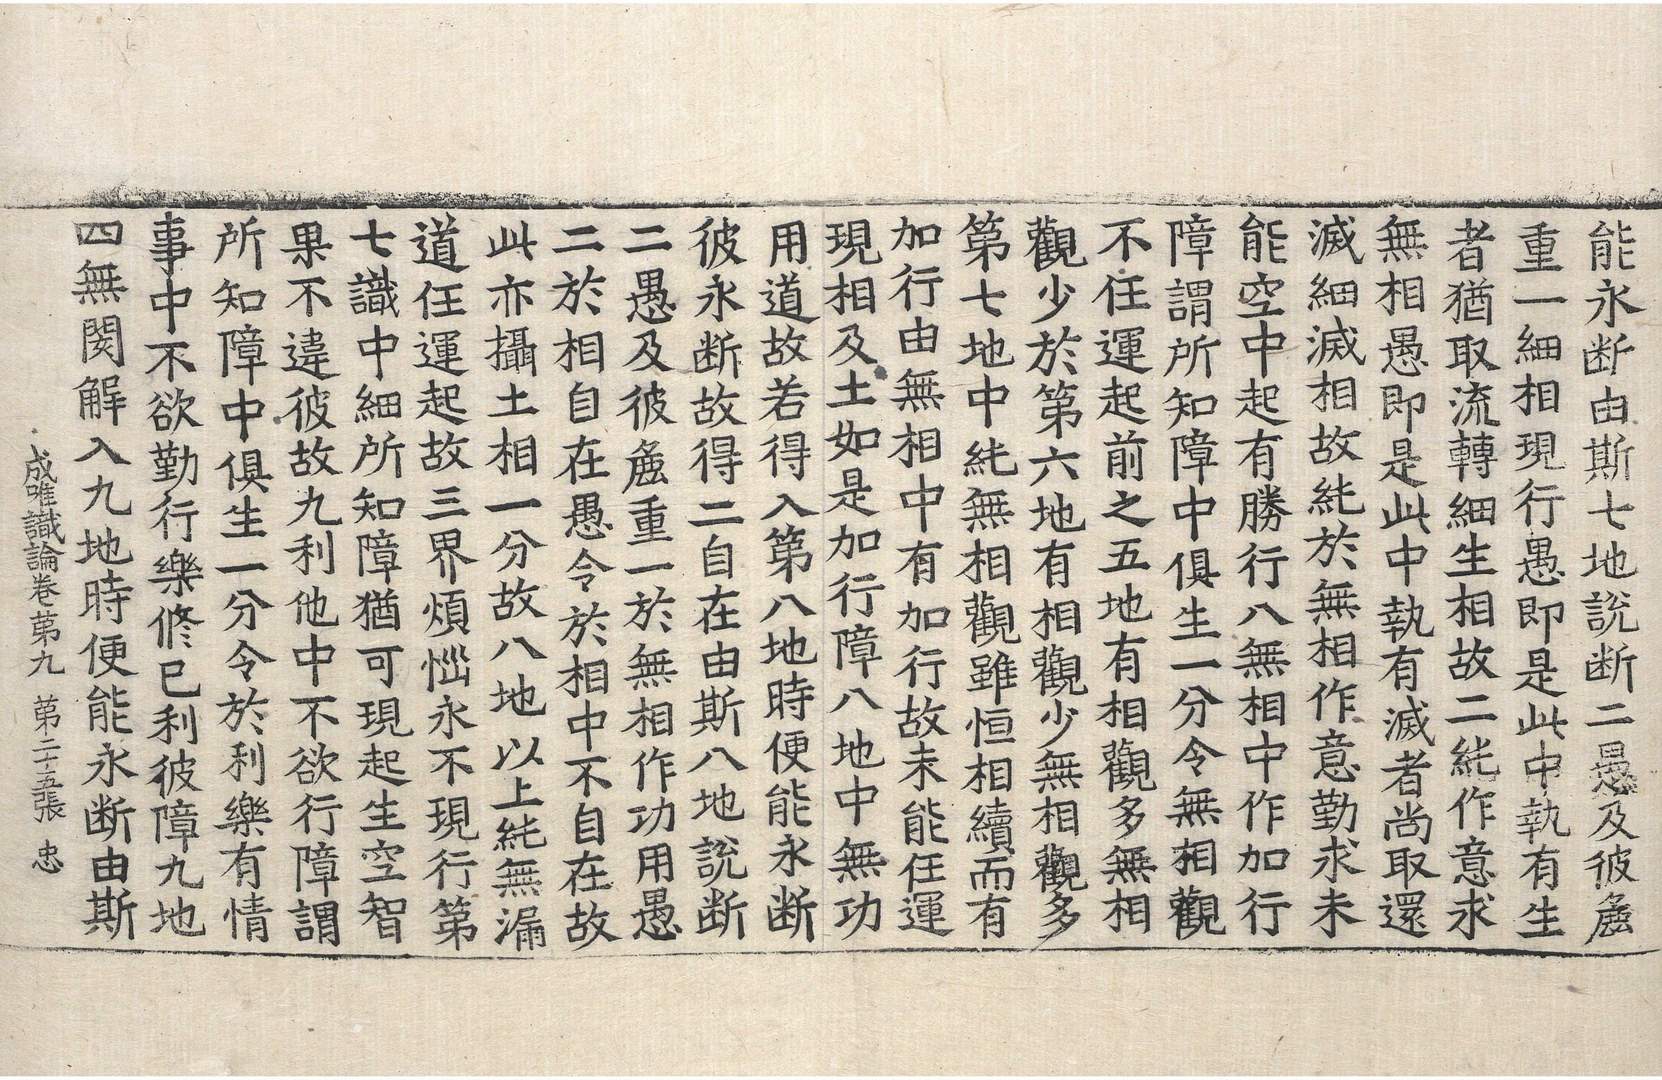 能永断由斯七地說断二愚及彼麁
重一細相現行愚即是此中執有生
者猶取流轉細生相故二純作意求
無相愚即是此中執有滅者尚取還
滅細滅相故純於無相作意勤求未
能空中起有勝行八無相中作加行
障謂所知障中俱生一分令無相觀
不任運起前之五地有相觀多無相
觀少於第六地有相觀少無相觀多
第七地中純無相觀雖恒相續而有
加行由無相中有加行故未能任運
現相及土如是加行障八地中無功
用道故若得入第八地時便能永断
彼永断故得二自在由斯八地說断
二愚及彼麁重一於無相作功用愚
二於相自在愚令於相中不自在故
此亦攝土相一分故八地以上純無漏
道任運起故三界煩惱永不現行第
七識中細所知障猶可現起生空智
果不違彼故九利他中不欲行障謂
所知障中俱生一分令於利樂有情
事中不欲勤行樂修己利彼障九地
四無閡解入九地時便能永断由斯
成唯識論卷苐九 苐二十五張 忠